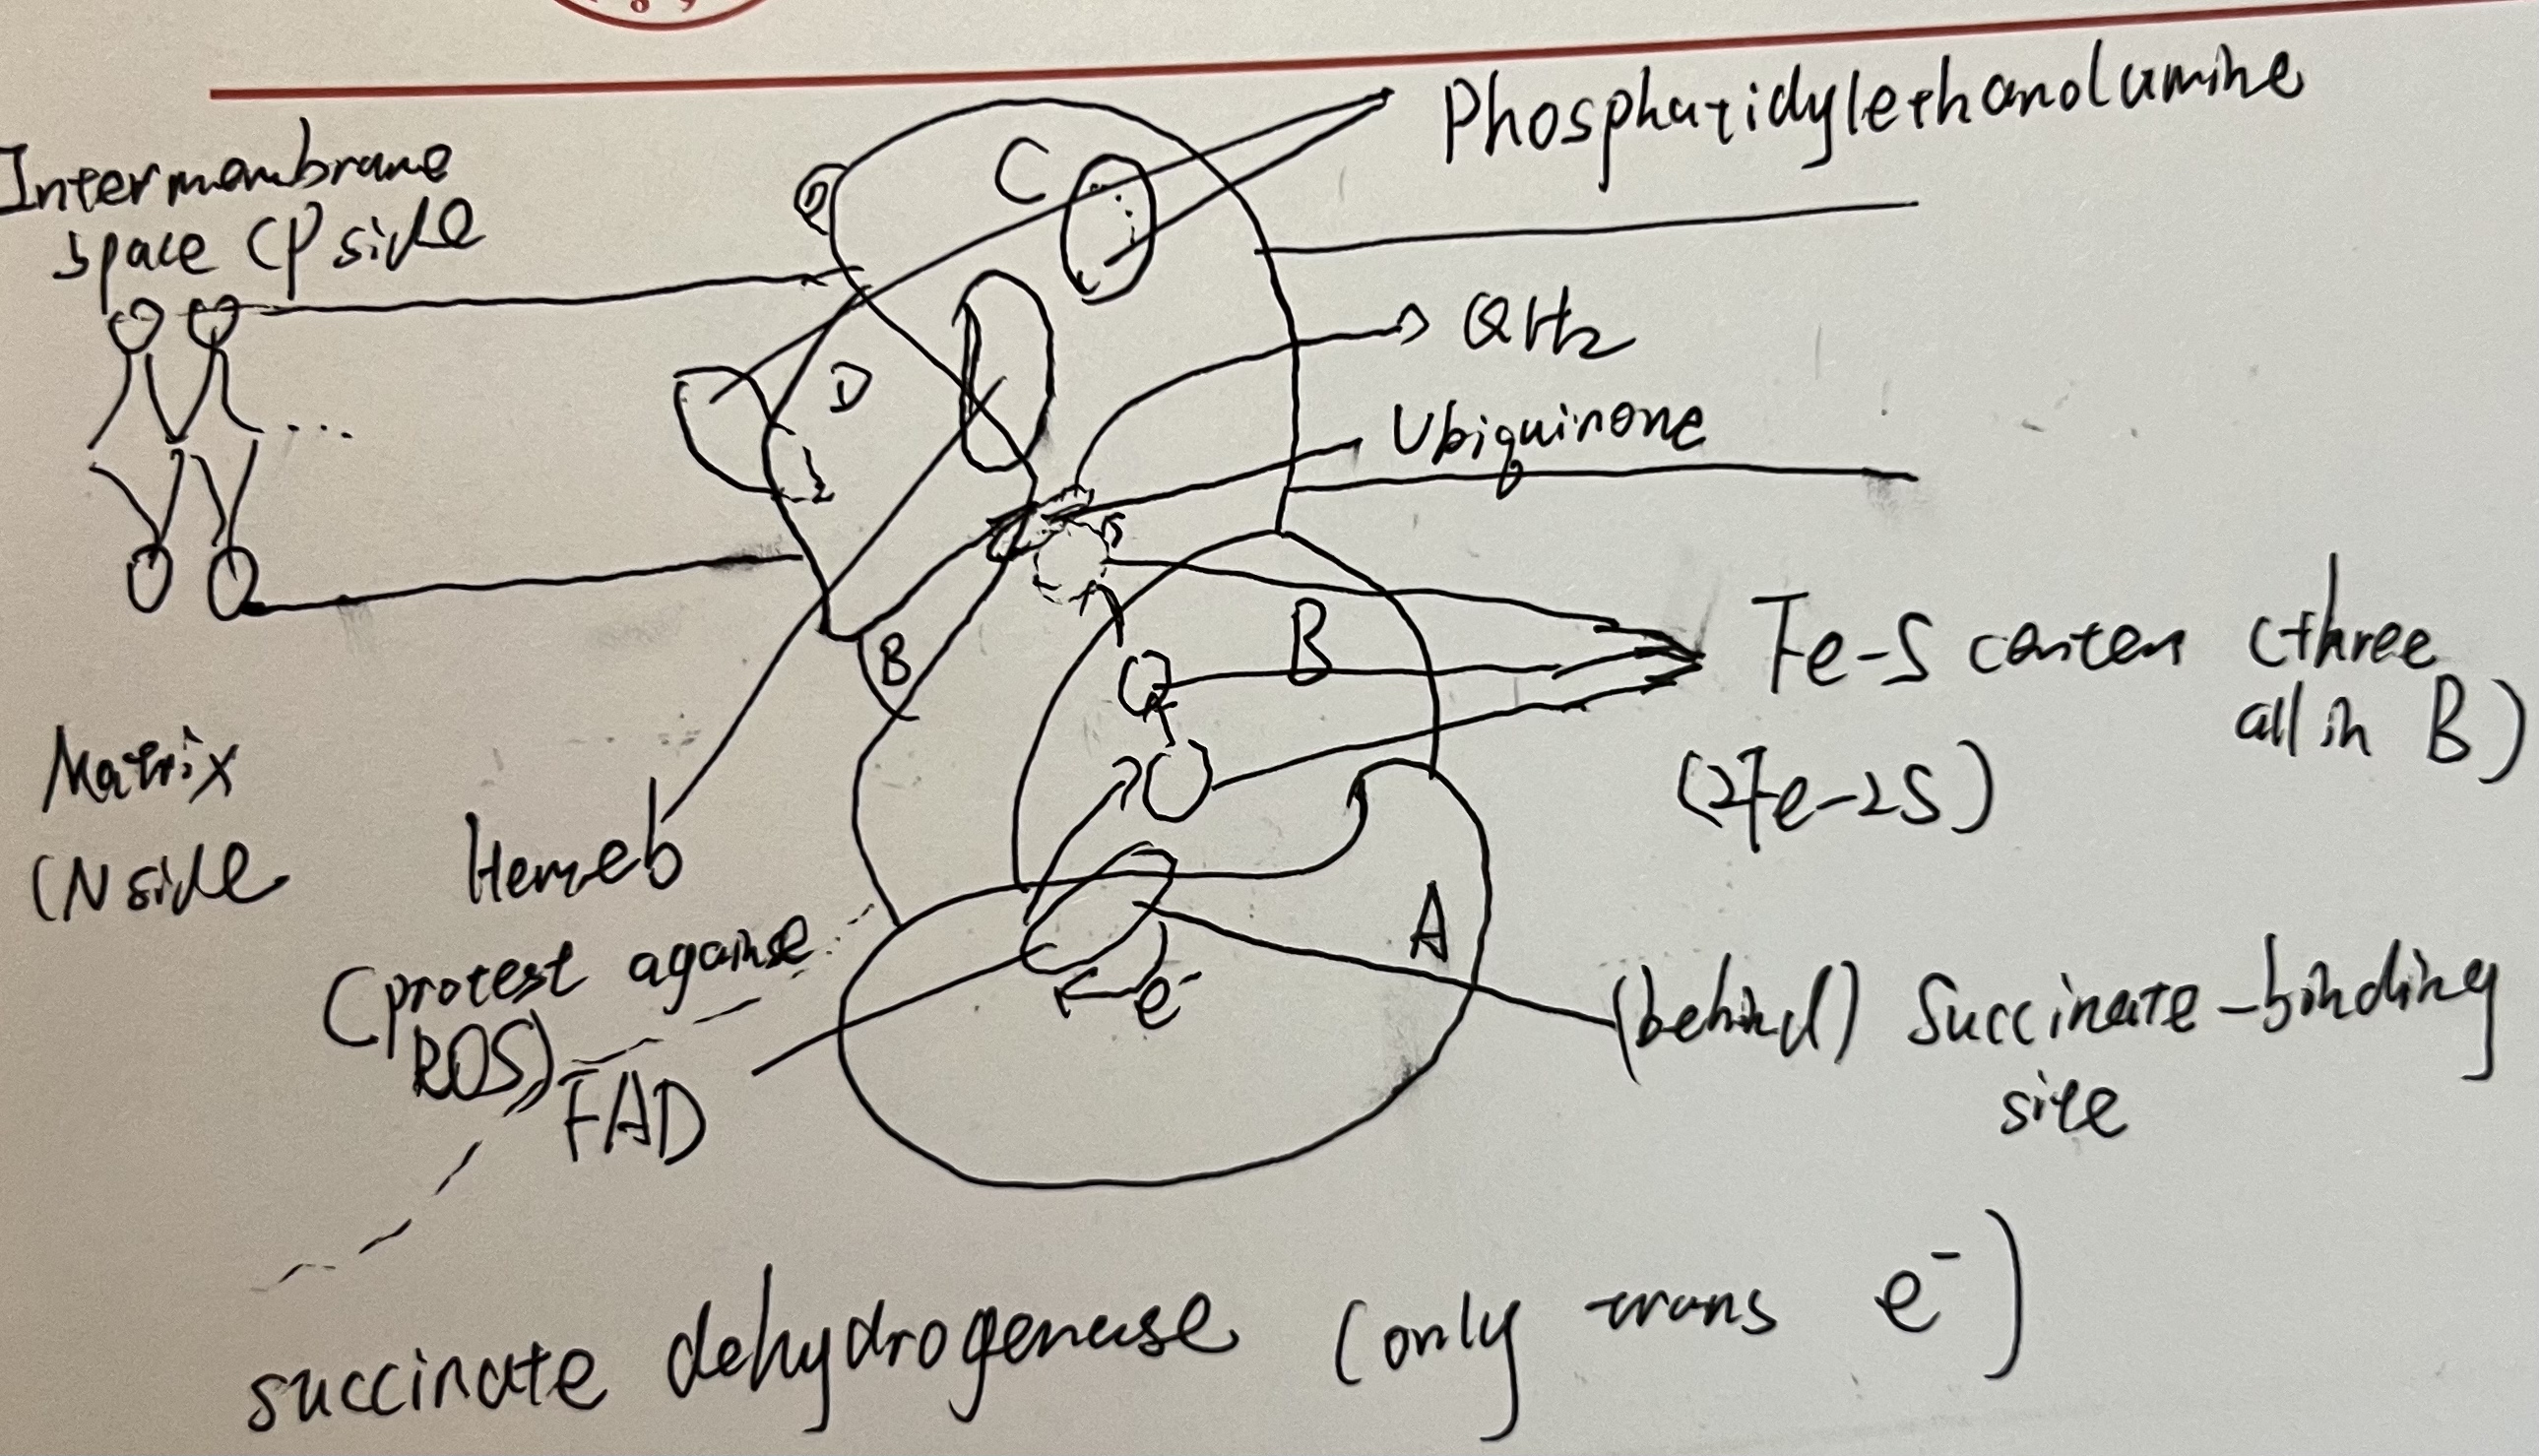 Phosphatidylethanolamine
Intermembrane
space (P side
C
D
D
QH2
Ubiquinone
B
B
Fe-S centers (three
all in B)
(2Fe-2S)
Matrix
(N side
Heme b
(protest against
ROS)
FAD
A
e-
(behind) Succinate-binding
site
succinate dehydrogenase (only trans e-)